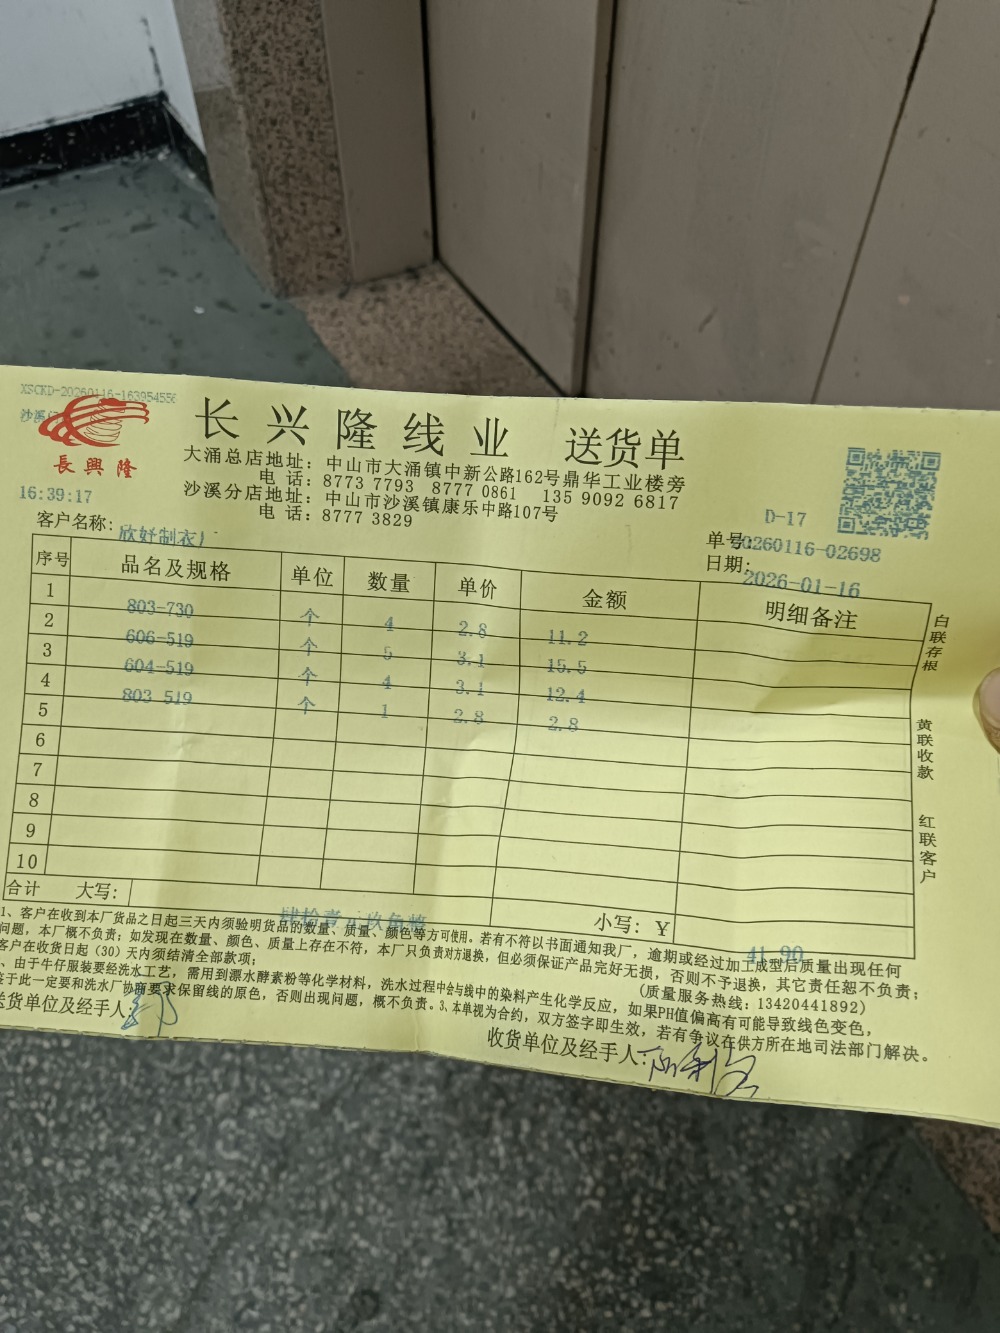 XSCKD-20260116-163954556
沙溪
長興隆
长兴隆线业 送货单
大涌总店地址：中山市大涌镇中新公路162号鼎华工业楼旁
电 话：8773 7793 8777 0861 135 9092 6817
沙溪分店地址：中山市沙溪镇康乐中路107号
电 话：8777 3829
16:39:17
D-17
客户名称：欣妤制衣厂
单号：20260116-02698
日期：2026-01-16
序号 品名及规格 单位 数量 单价 金额 明细备注
1 803-730 个 4 2.8 11.2
2 606-519 个 5 3.1 15.5
3 604-519 个 4 3.1 12.4
4 803 519 个 1 2.8 2.8
5
6
7
8
9
10
合计 大写：肆拾壹元玖角整 小写：¥ 41.90
白联存根
黄联收款
红联客户
1、客户在收到本厂货品之日起三天内须验明货品的数量、质量、颜色等方可使用。若有不符以书面通知我厂，逾期或经过加工成型后质量出现任何
问题，本厂概不负责；如发现在数量、颜色、质量上存在不符，本厂只负责对方退换，但必须保证产品完好无损，否则不予退换，其它责任恕不负责；
客户在收货日起（30）天内须结清全部款项；
（质量服务热线：13420441892）
、由于牛仔服装要经洗水工艺，需用到漂水酵素粉等化学材料，洗水过程中会与线中的染料产生化学反应，如果PH值偏高有可能导致线色变色，
鉴于此一定要和洗水厂协商要求保留线的原色，否则出现问题，概不负责。3、本单视为合约，双方签字即生效，若有争议在供方所在地司法部门解决。
送货单位及经手人：
收货单位及经手人：